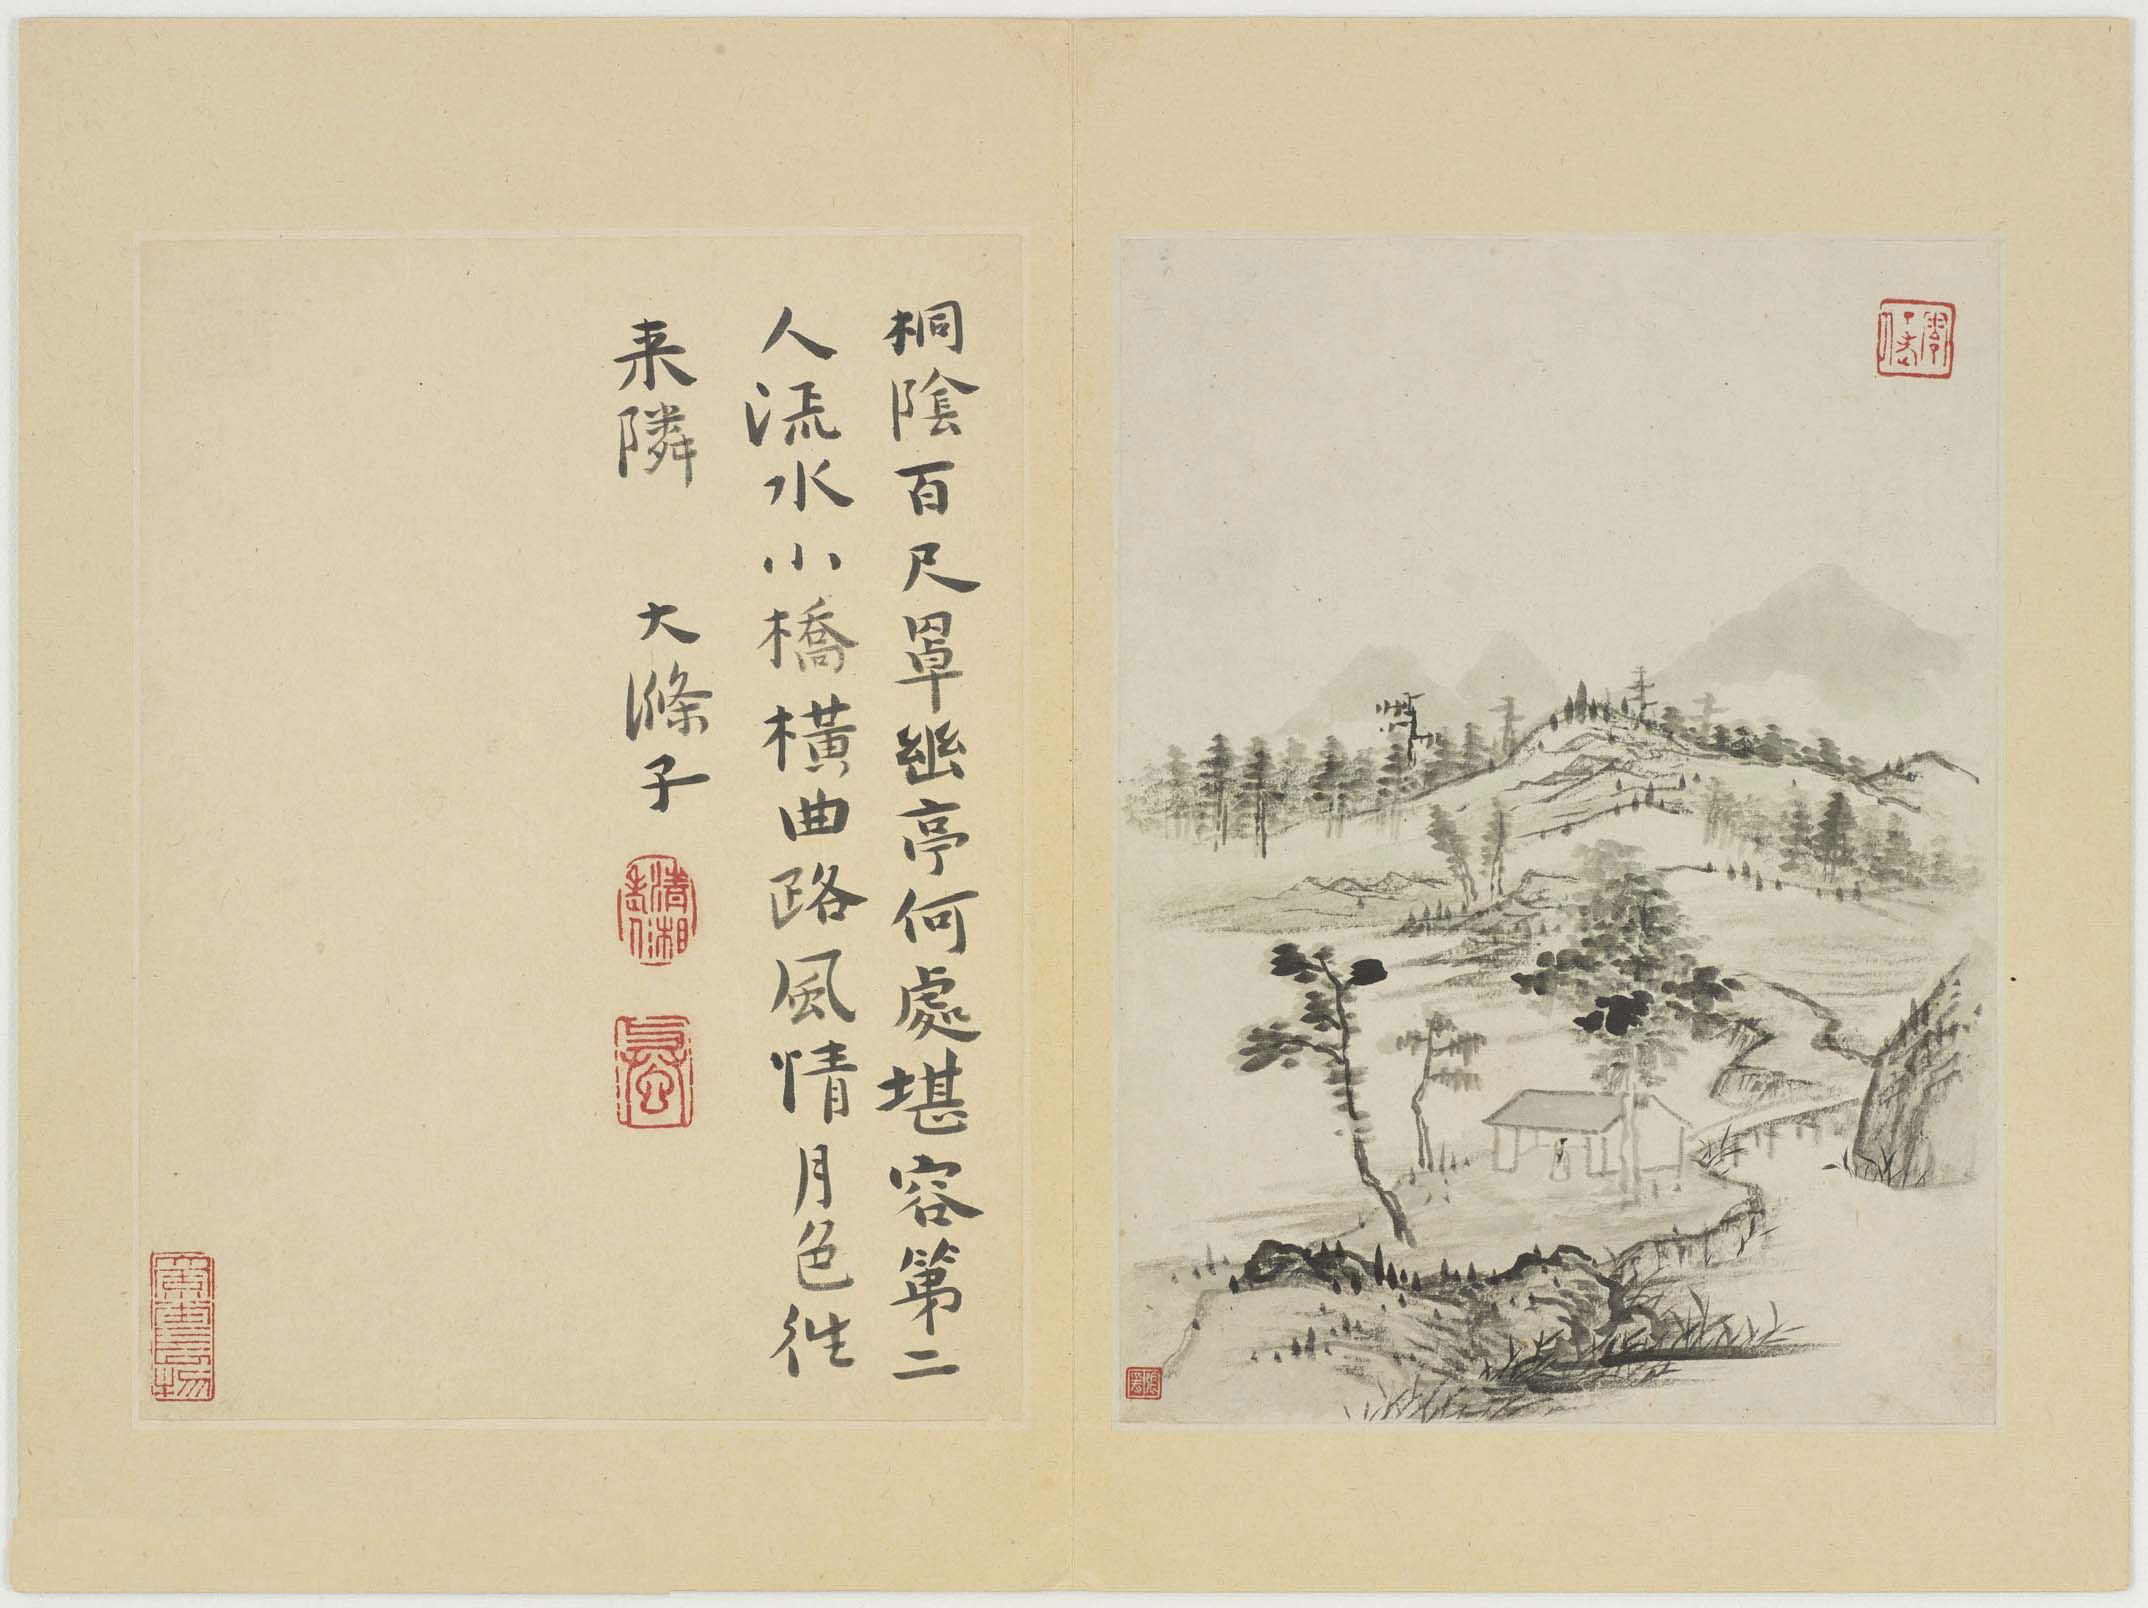 桐陰百尺罩幽亭何處堪容第二
人流水小橋橫曲路風情月色往
来隣
大滌子
清湘老人